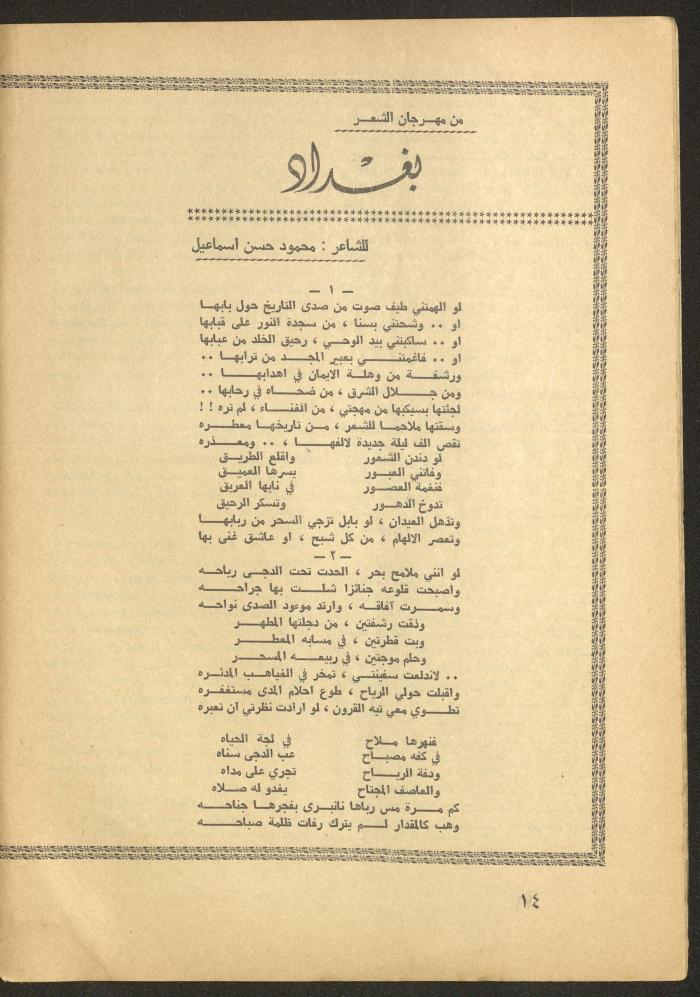 من مهرجان الشعر
بغداد
للشاعر : محمود حسن اسماعيل
— ١ —
لو الهمتني طيف صوت من صدى التاريخ حول بابها
او .. وشحتني بسنا ، من سجدة النور على قبابها
او .. ساكبتني بيد الوحي ، رحيق الخلد من عبابها
او .. فاغمتني بعبير المجد من ترابها ..
ورشفة من وهلة الايمان في اهدابها ..
ومن جلال الشرق ، من ضحاه في رحابها ..
لجئتها بسبكها من مهجتي ، من الغناء ، لم تره ! !
وسقتها ملاحما للشعر ، من تاريخها معطره
تقص الف ليلة جديدة لالفها ، .. ومعذره
لو دندن الشعور واقلع الطريق
وفاتني العبور بسرها العميق
فنغمة العصور في نايها العريق
تدوخ الدهور وتسكر الرحيق
وتذهل العيدان ، لو بابل تزجي السحر من ربابها
وتعصر الالهام ، من كل شبح ، او عاشق غنى بها
— ٢ —
لو انني ملامح بحر ، الحدت تحت الدجى رياحه
واصبحت قلوعه جنائزا شلت بها جراحه
وسمرت آفاقه ، وارتد موءود الصدى نواحه
وذقت رشفتين ، من دجلتها المطهر
وبت قطرتين ، في مسابه المعطر
وحلم موجتين ، في ربيعه المسحر
.. لاندلعت سفينتي ، تمخر في الغياهب المدثره
واقبلت حولي الرياح ، طوع احلام المدى مستغفره
تطوي معي تيه القرون ، لو ارادت نظرتي ان تعبره
فنهرها ملاح في لجة الحياه
في كفه مصباح عب الدجى سناه
ودفة الرياح تجري على مداه
والعاصف المجتاح يغدو له صلاه
كم مرة مس رباها نانبرى بفجرها جناحه
وهب كالمقدار لم يترك رفات ظلمة صباحه
١٤